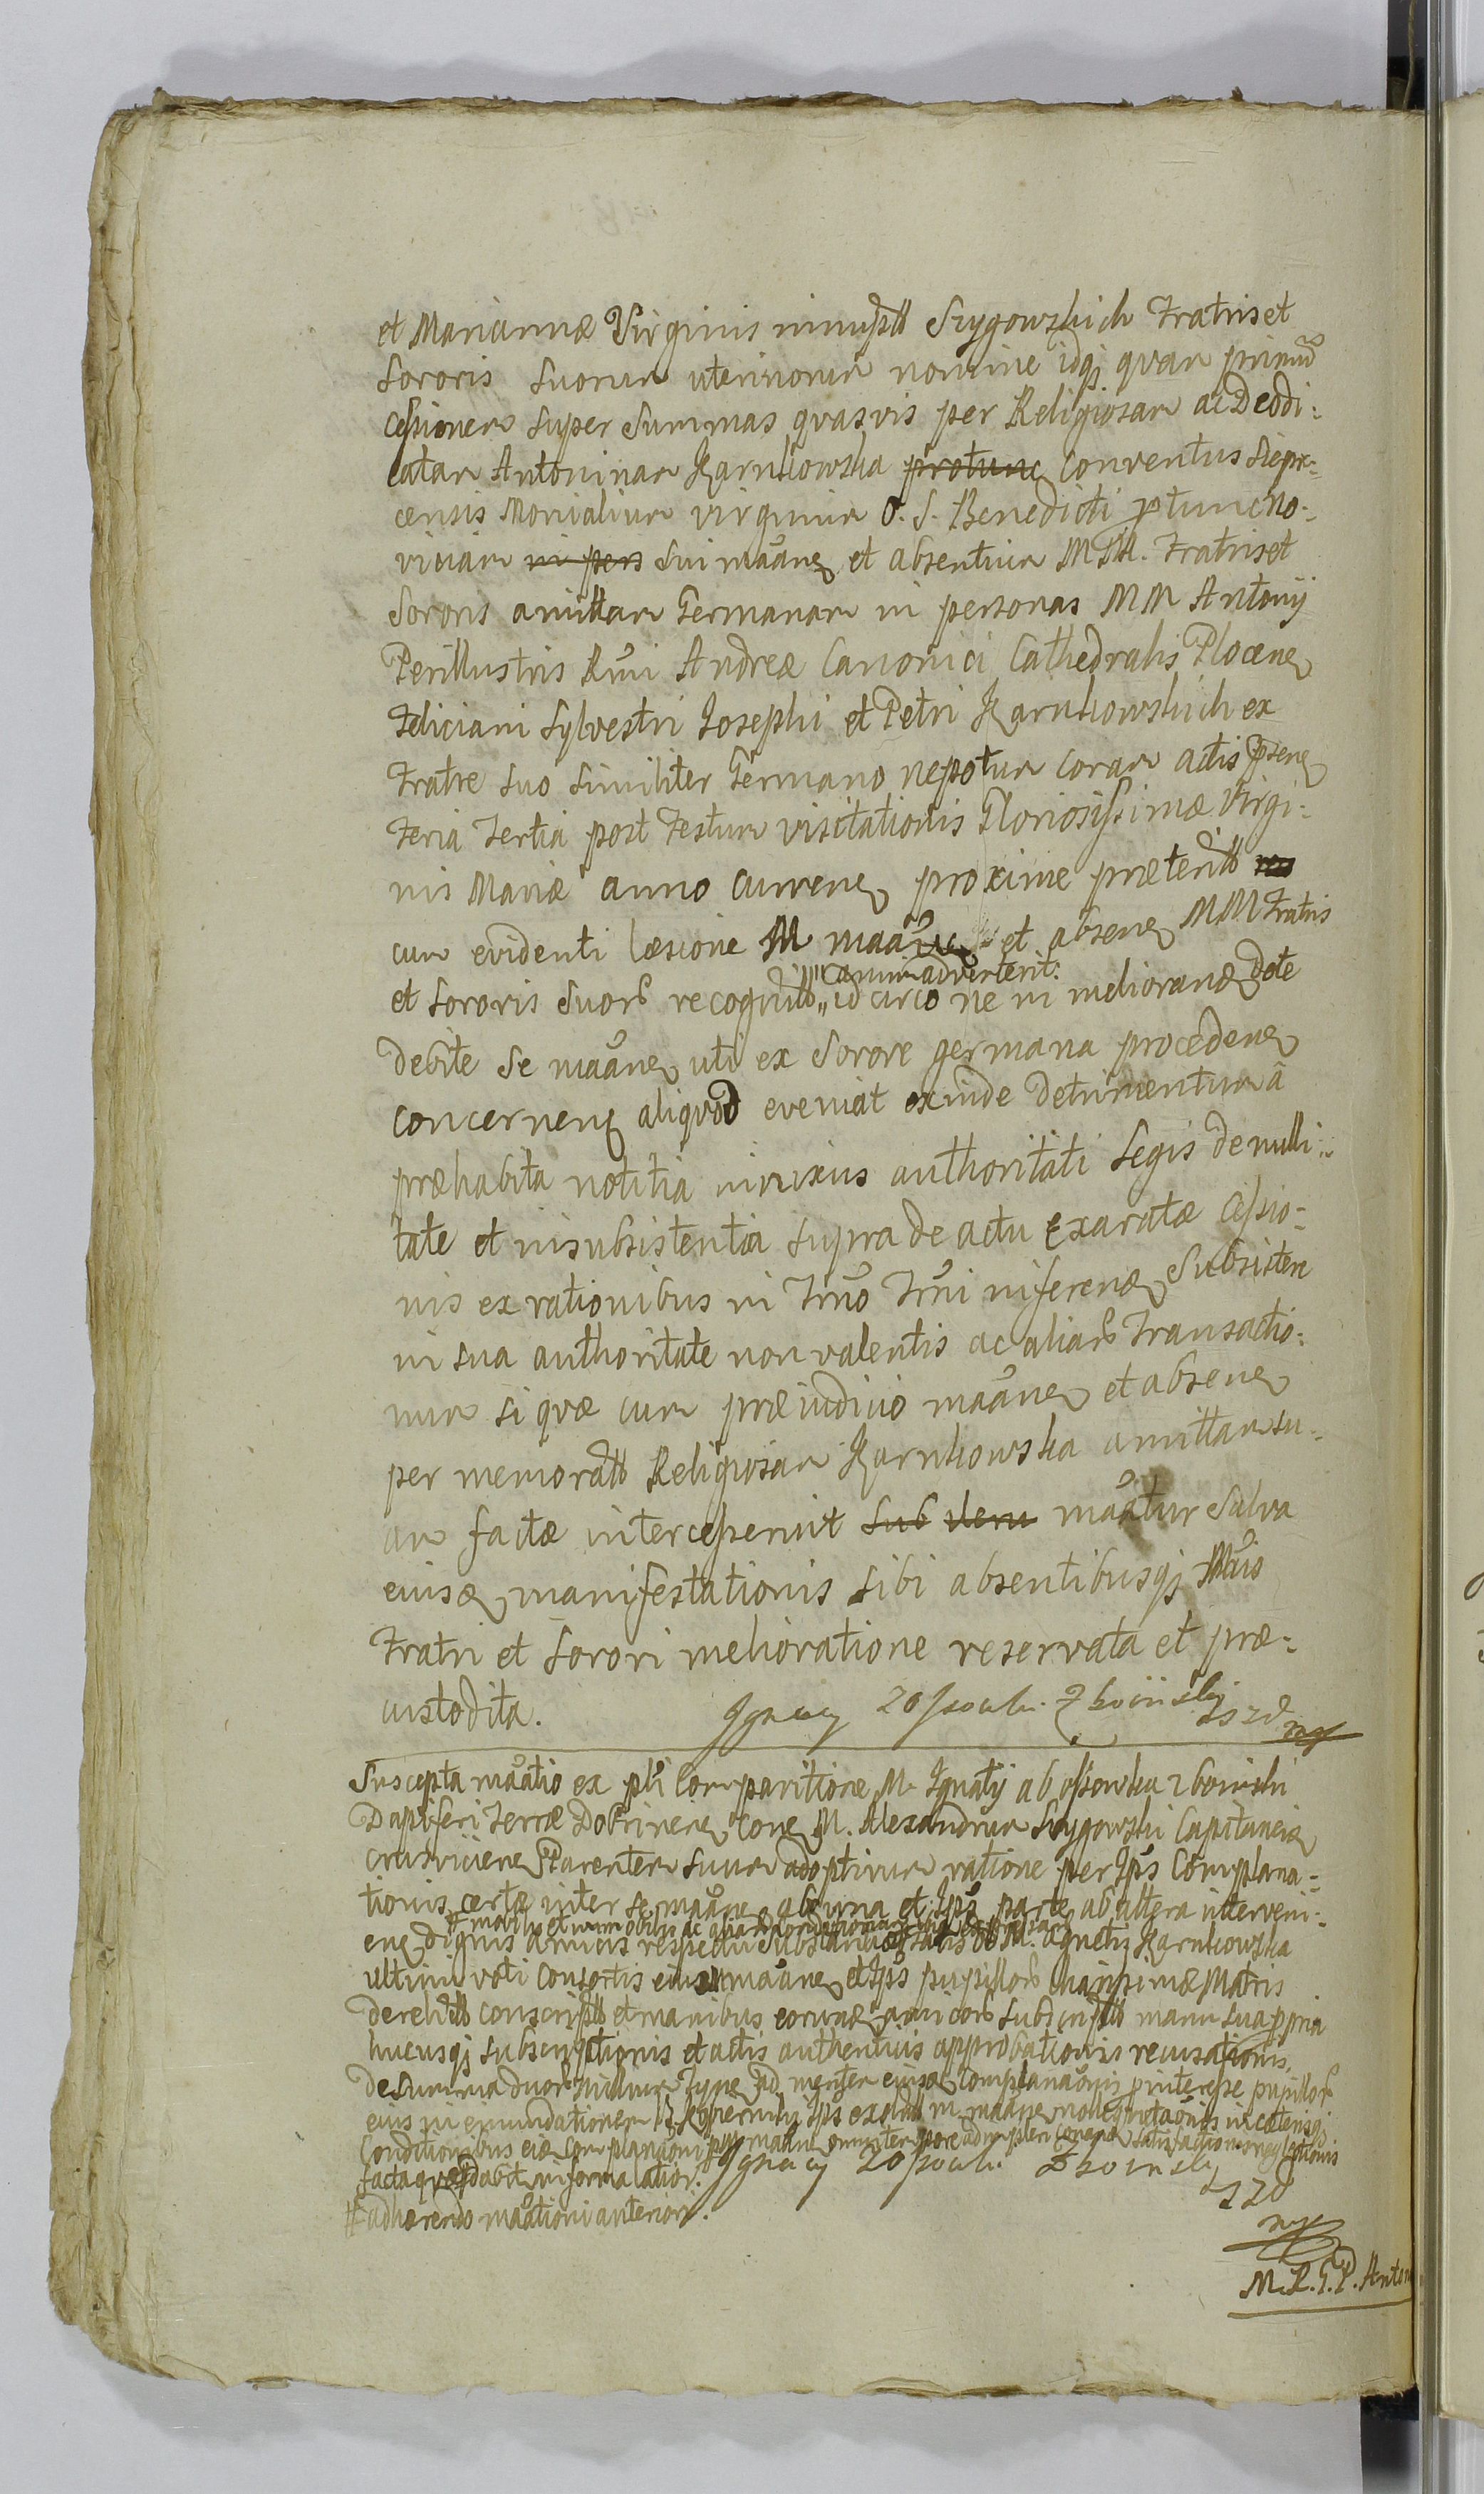 et Mariannæ Virginis innuptæ Szygowskich Fratris et
Sororis Suorum uterinorum nomine idq; quam primum
Cessionem super Summas quasvis per Religiosam ac Deodi:
catam Antoninam Karnkowska protunc Conventus Sierpc:
censis Monialium virginum O. S. Benedicti ptunc No:
viciam in pers sui maãne et absentium MM. Fratris et
Sororis amittam Germanam in personas MM Antonij
Perillustris Rmi Andreæ Canonici Cathedralis Plocen
Feliciani Sylvestri Josephi et Petri Karnkowskich ex
Fratre suo similiter Germano nepotum coram actis psen
Feria Tertia post Festum visitationis Gloriosissimæ Virgi:
nis Mariæ anno curren proxime præterito
cum evidenti læsione M maãn et absen MM Fratris
et Sororis suor recognit animadverterit.
id circo ne in melioran Dote
debite se maãn uti ex Sorore germana proceden
concernen aliquod eveniat exinde Detrimentum â
præhabita notitia innixus authoritati Legis de nulli:
tate et insubsistentia supra de actu exaratæ Cessio:
nis ex rationibus in Trno Trni inferen Subsistere
in sua authoritate non valentis ac aliar Transactio:
num si quæ cum præiudicio maãne et absene
per memorat Religiosam Karnkowska amittam su:
am factæ intercesserint sub iteru maãtur salva
eiusd manifestationis sibi absentibusq; Mcis
Fratri et Sorori melioratione reservata et præ:
custodita.
Ignacy z Ossowki Zboinsky
SZD mp
Suscepta maãtio ex pti Comparitione M. Ignatij ab Ossowka Zboinski
Dapiferi Terræ Dobrinen con M. Alexandrum Szygowski Capitaneu
crusvicien Parentem suum adoptivum ratione per Ips Complana:
tionis certæ inter se maãne ab una et Ips parte ab altera interveni:
# mobilis et immobilis ac
en dignis amicis respectu Substantiæ M. Agnetis Karnkowska
ultimi voti Consortis eius maãne et Ips pupillor charissimæ Matris
derelict conscript et manibus eorund amicor subscript manu sua ppria
hucusq; subscriptionis et actis authenticis approbationis recusationis,
de Summa duor millium Tynf ad mentem eiusd Complanaõnis p interesse pupillor
eius in emundationem
Conditionibus eid Complanaõni
facta quest dabit in forma latiori. Ignacy z Ossowki Zboinsky
SZD
mp
# adhærendo maãtioni anteriori.
M. L. G. P. Anton